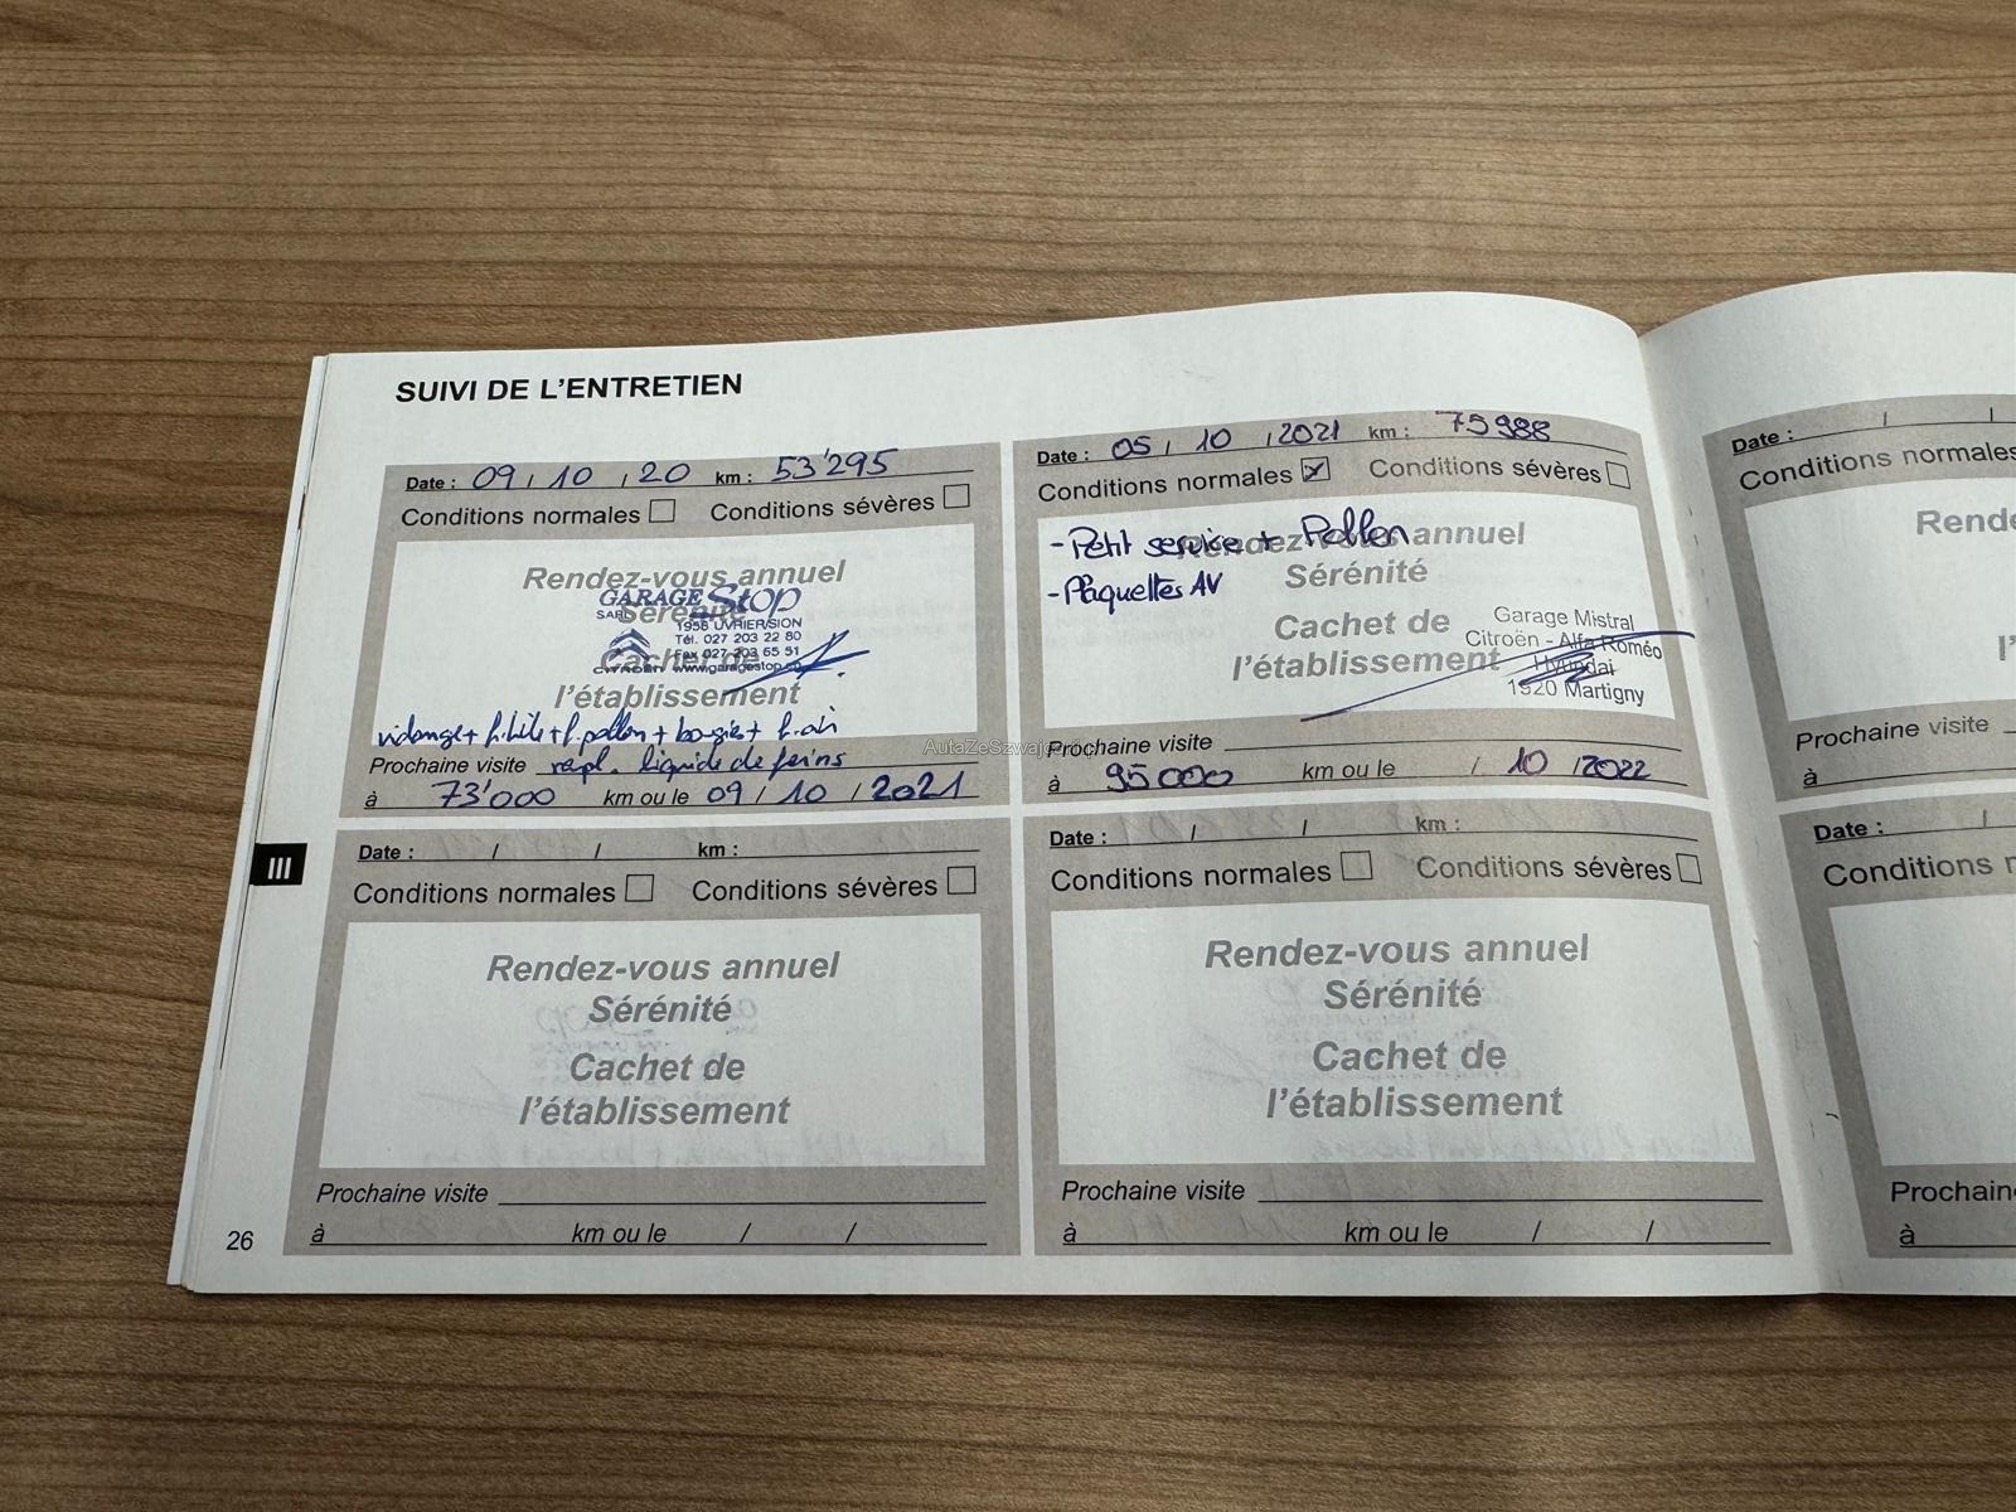 SUIVI DE L'ENTRETIEN
Date : 09 / 10 / 20 km : 53'295
Conditions normales Conditions sévères
Rendez-vous annuel
Sérénité
GARAGE Stop
SARL
1958 UVRIER/SION
Tél. 027 203 22 80
Fax 027 203 65 51
CITROËN www.garagestop.ch
Cachet de
l'établissement
vidange + f. huile + f. pollen + bougies + f. air
Prochaine visite rempl. liquide de freins
à 73'000 km ou le 09 / 10 / 2021
Date : 05 / 10 / 2021 km : 75988
Conditions normales Conditions sévères
- Petit service + Pollen
- Plaquettes AV
Rendez-vous annuel
Sérénité
Cachet de
l'établissement
Garage Mistral
Citroën - Alfa Roméo
Hyundai
1920 Martigny
Prochaine visite
à 95000 km ou le / 10 / 2022
Date : / / km :
Conditions normales Conditions sévères
Rendez-vous annuel
Sérénité
Cachet de
l'établissement
Prochaine visite
à km ou le / /
Date : / / km :
Conditions normales Conditions sévères
Rendez-vous annuel
Sérénité
Cachet de
l'établissement
Prochaine visite
à km ou le / /
III
26
Date : / /
Conditions normales
Rend
l'
Prochaine visite
à
Date : /
Conditions
Prochain
à